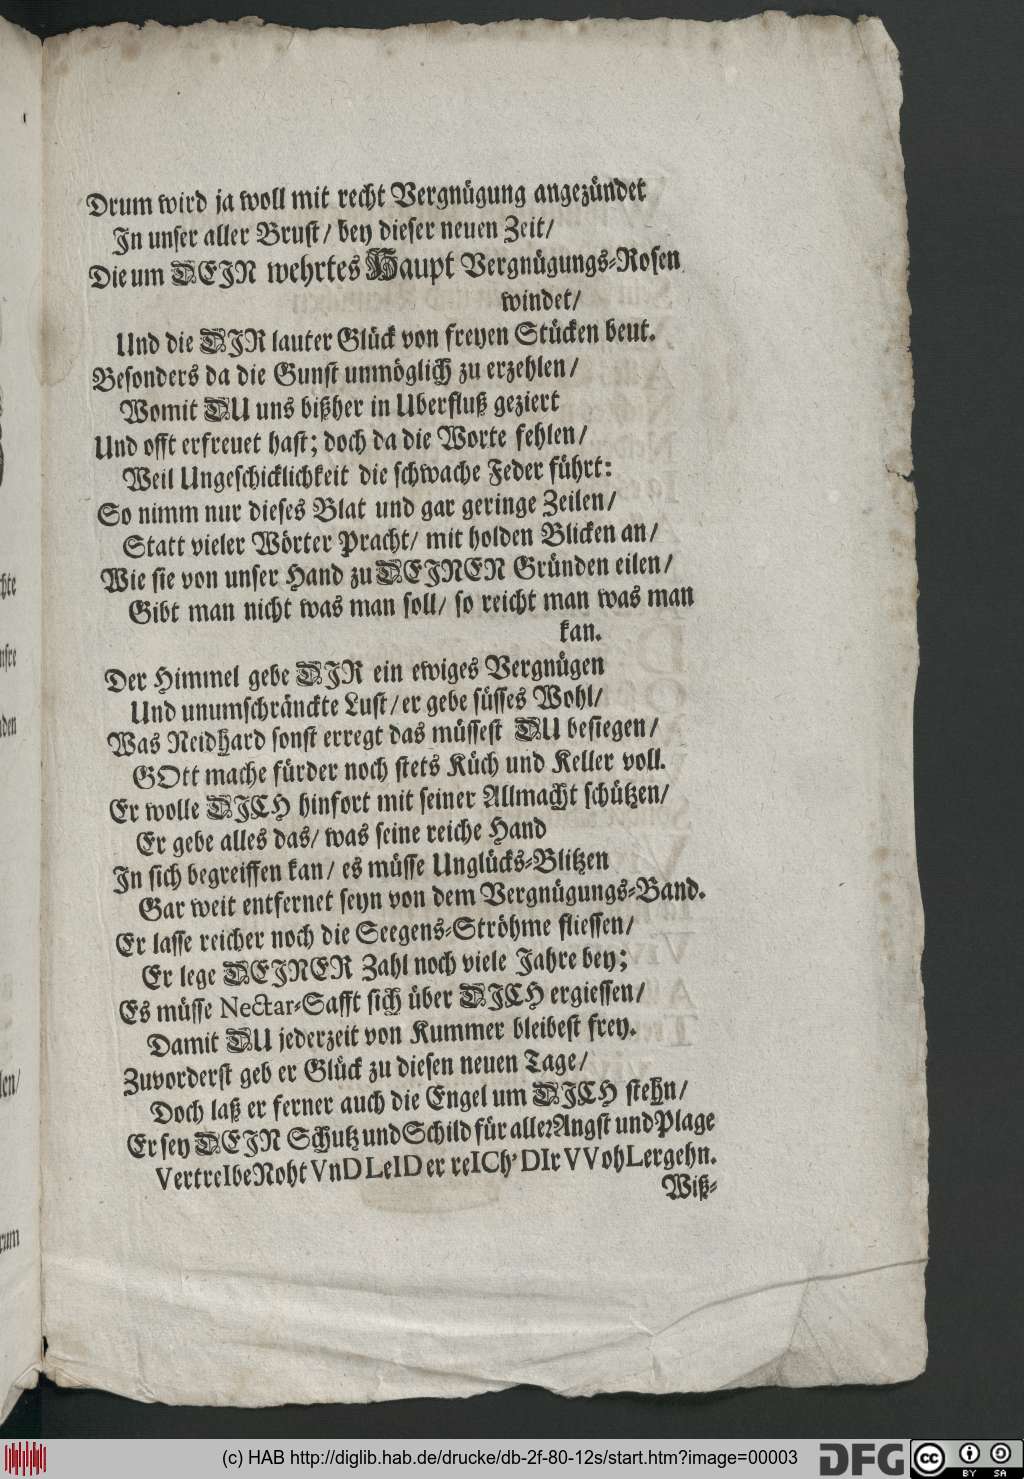 Drum wird ja woll mit recht Vergnügung angezündet
In unser aller Brust / bey dieser neuen Zeit /
Die um DEIN wehrtes Haupt Vergnügungs-Rosen
windet /
Und die DIR lauter Glück von freyen Stücken beut.
Besonders da die Gunst unmöglich zu erzehlen /
Womit DU uns bißher in Uberfluß geziert
Und offt erfreuet hast; doch da die Worte fehlen /
Weil Ungeschicklichkeit die schwache Feder führt:
So nimm nur dieses Blat und gar geringe Zeilen /
Statt vieler Wörter Pracht / mit holden Blicken an /
Wie sie von unser Hand zu DEINEN Gründen eilen /
Gibt man nicht was man soll / so reicht man was man
kan.
Der Himmel gebe DIR ein ewiges Vergnügen
Und unumschränckte Lust / er gebe süsses Wohl /
Was Neidhard sonst erregt das müssest DU besiegen /
GOtt mache fürder noch stets Küch und Keller voll.
Er wolle DICH hinfort mit seiner Allmacht schützen /
Er gebe alles das / was seine reiche Hand
In sich begreiffen kan / es müsse Unglücks-Blitzen
Gar weit entfernet seyn von dem Vergnügungs-Band.
Er lasse reicher noch die Seegens-Ströhme fliessen /
Er lege DEINER Zahl noch viele Jahre bey;
Es müsse Nectar-Safft sich über DICH ergiessen /
Damit DU jederzeit von Kummer bleibest frey.
Zuvorderst geb er Glück zu diesen neuen Tage /
Doch laß er ferner auch die Engel um DICH stehn /
Er sey DEIN Schutz und Schild für aller Angst und Plage
VertreIbe Noht VnD LeID er reICh' DIr VVohLergehn.
Wiß-
chte
nsre
nden
len /
rum
(c) HAB http://diglib.hab.de/drucke/db-2f-80-12s/start.htm?image=00003
DFG
cc
BY SA